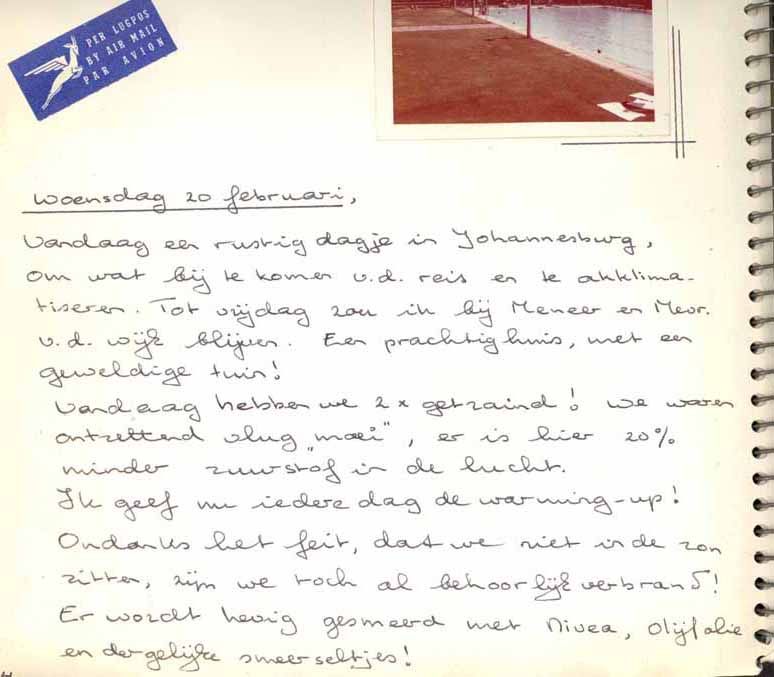 PER LUGPOS
BY AIR MAIL
PAR AVION
Woensdag 20 februari,
Vandaag een rustig dagje in Johannesburg,
om wat bij te komen v.d. reis en te akklima-
tiseren. Tot vrijdag zou ik bij Meneer en Mevr.
v.d. Wijk blijven. Een prachtig huis, met een
geweldige tuin!
Vandaag hebben we 2x getraind! We waren
ontzettend vlug "moei", er is hier 20%
minder zuurstof in de lucht.
Ik geef nu iedere dag de warming-up!
Ondanks het feit, dat we niet in de zon
zitten, zijn we toch al behoorlijk verbrand!
Er wordt hevig gesmeerd met Nivea, Olijfolie
en dergelijke smeerseltjes!